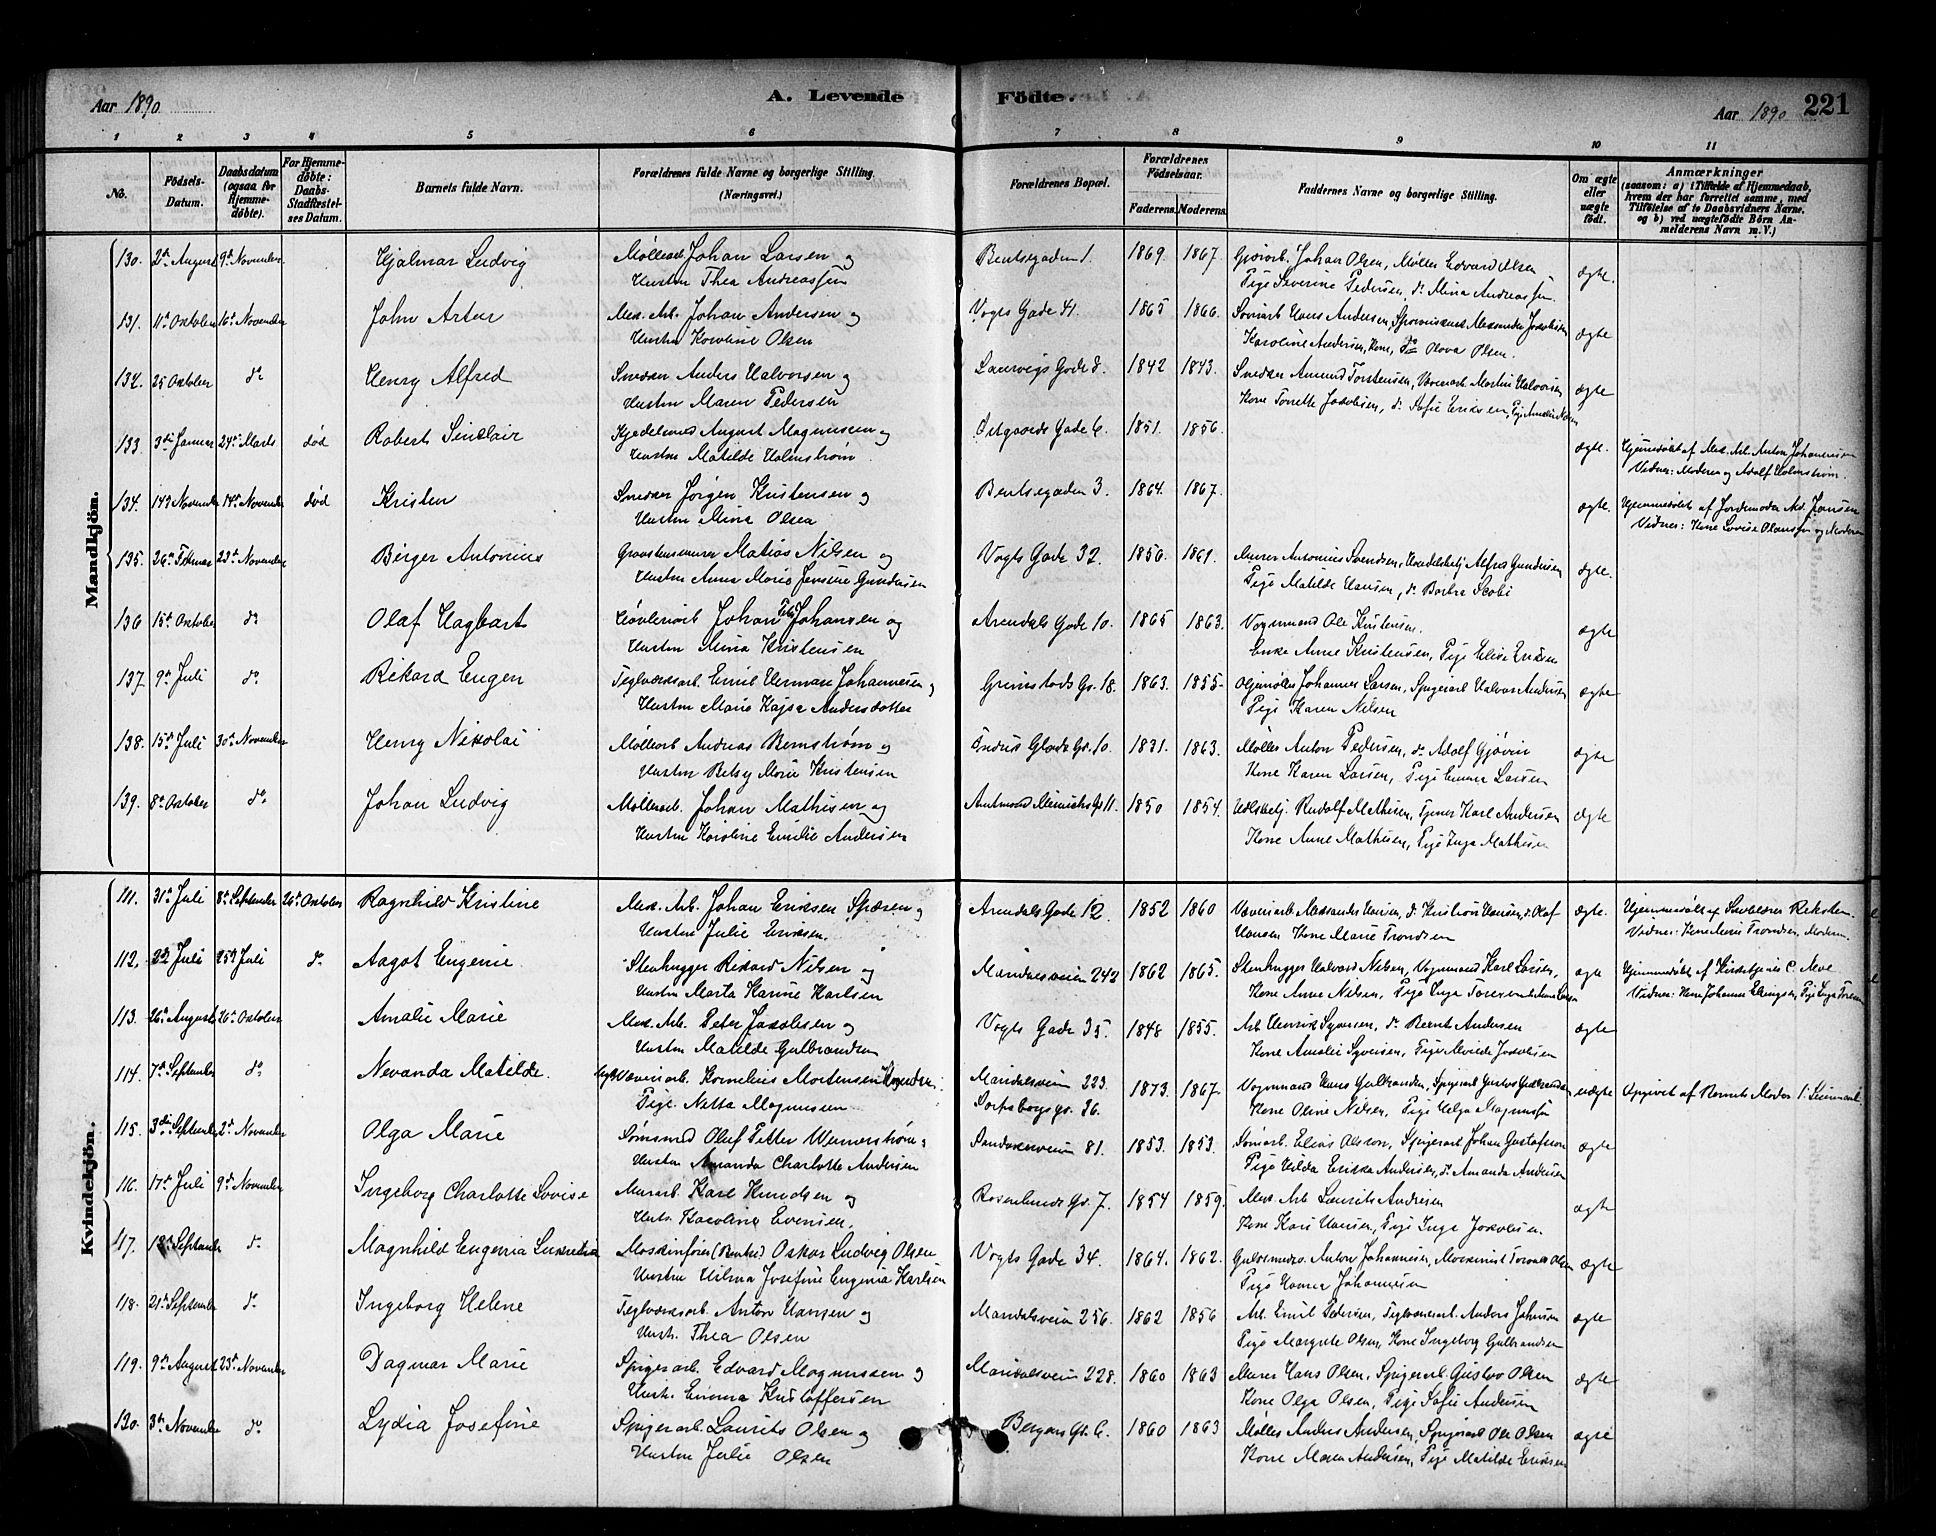 Aar 1890
A. Levende Fødte.
Aar 1890
221
1 2 3 4 5 6 7 8 9 10 11
No.
Födsels-Datum.
Daabsdatum (ogsaa for Hjemme-döbte).
For Hjemme-döbte: Daabs-Stadfæstel-ses Datum.
Barnets fulde Navn.
Forældrenes fulde Navne og borgerlige Stilling. (Næringsvei.)
Forældrenes Bopæl.
Forældrenes Födselsaar.
Faderens. Moderens.
Faddernes Navne og borgerlige Stilling.
Om ægte eller uægte födt.
Anmærkninger (saasom: a) i Tilfælde af Hjemmedaab, hvem der har forrettet samme, med Tilföielse af to Daabsvidners Navne, og b) ved uægtefödte Börn An-melderens Navn m. V.)
Mandkjön.
130. 2d August 9d November Hjalmar Ludvig Møllearb. Johan Larsen og Bentsegaden 1. 1869. 1867. Johan Olsen, Møller Edvard Olsen
Hustru Thea Andreassen Pige Severine Pedersen, do Mina Andreassen. ægte.
131. 11d Oktober 16d November John Artur Mek. Arb. Johan Andersen og Vogts Gade 41. 1865 1866. Hans Andersen,
Hustru Karoline Olsen Karoline Andersen, Kone, do Olava Olsen. ægte
132. 25 Oktober do Henry Alfred Snedker Anders Halvorsen og Laurvigs Gade 8. 1842 1843. Snedker Amund Torstensen,
Hustru Maren Pedersen Kone Jakobsen, do Sofie Eriksen, ægte
133. 3die Januar 24d Marts død Robert Sinclair Kjedelsmed August Magnussen og Østgaards Gade 6. 1851. 1856. ægte. Hjemmedøbt af Mek. Arb. Anton Johannessen
Hustru Matilde Holmstrøm. Vidner: Moderen og Adolf Holmstrøm.
134. 14d November 14d November død Kristen Snedker Jørgen Kristensen og Bentsegaden 3. 1864. 1867. ægte. Hjemmedøbt af Jordemoder Jansen
Hustru Mina Olsen Vidner: Kone Lovise og Moderen
135. 26d Februar 23d November Birger Antonius Matias Nilsen og Vogts Gade 32. 1850. 1861. Murer Antonius Svendsen, Alfred Gundersen
Hustru Anna Marie Jensine Gundersen Pige Matilde Hansen, do ægte.
136 15d Oktober do Olaf Hagbart Johan Johansen og Arendals Gade 10. 1865 1863. Vognmand Ole Kristensen.
Hustru Mina Kristensen Enke Anne Kristensen, Pige Elise Eriksen ægte
137 9d Juli do Rikard Eugen Teglværksarb. Emil Herman Johannesen og Grimstads G. 18. 1863. 1855. Johannes Larsen, Spigerarb. Halvor Andersen
Hustru Marie Kajsa Andersdotter Pige Karen Nilsen ægte
138. 15d Juli 30d November Henry Nikolai Møllearb. Andreas Bernstrøm og 10. 1831. 1863. Møller Anton Pedersen, do Adolf Gjøvin
Hustru Betsy Marie Kristensen Kone Karen Larsen, Pige Emma Larsen ægte
139. 8d Oktober do Johan Ludvig Møllearb. Johan Mathisen og Amtmand Meinichs G. 11. 1850 1854. Rudolf Mathisen, Tjener Karl Andersen
Hustru Karoline Emilie Andersen Kone Anne Mathisen, Pige Inga Mathisen ægte
Kvindekjön.
111. 31d Juli 8d September 26d Oktober Ragnhild Kristine Mek. Arb. Johan Eriksen og Arendals Gade 12. 1852 1860 Væveriarb. Aleksander Hansen, do Kristian Hansen, do Olaf ægte. Hjemmedøbt af
Hustru Julie Eriksen. Hansen Kone Marie Trondsen Vidner: Kone Marie Trondsen, Moderen.
112. 22d Juli 25d Juli do Aagot Eugenie Stenhugger Rikard Nilsen og Maridalsveien 242 1862 1865. Stenhugger Halvard Nilsen, Vognmand Karl Larsen, ægte Hjemmedøbt af
Hustru Marta Karine Karlsen Kone Anne Nilsen, Pige Inga Vidner: Kone Johanne
113. 26d August 26d Oktober Amalie Marie Mek. Arb. Peter Jakobsen og Vogts Gade 35. 1848 1855. Arb. Henrik Syversen, do Bernt Andersen ægte
Hustru Matilde Gulbrandsen Kone Amalie Syversen, Pige Jakobsen
114. 7d September do Nevanda Matilde. Væveriarb. Kornelius Mortensen Maridalsveien 223. 1873. 1867. Vognmand Hans Gulbrandsen, Spigerarb. Gustav uægte Opgivet af Barnets Moder
Pige Netta Magnussen Sarpsborgs g. 36. Kone Oline Nilsen, Pige Helga Magnussen
115. 3die September 2d November Olga Marie Oluf Petter Wennerstrøm og Sandakerveien 81. 1853. 1853. Elias Olsson, Spigerarb. Johan Gustafsson ægte
Hustru Amanda Charlotte Andersen Pige Hilda Erika Andersen, do Amanda Andersen
116. 17d Juli 9d November Ingeborg Charlotte Lovise Murarb. Karl Knudsen og Rosenlunds G. 7. 1854 1859. Mek. Arb. Laurits Andresen ægte
Hustr. Karoline Evensen. Kone Kari Hansen, Pige Inga Jakobsen.
117. 18d September do Magnhild Eugenia Lukretia Maskinfører Oskar Ludvig Olsen Vogts Gade 34. 1864. 1862. Guldsmedsv. Anton Johannesen, ægte
Hustru Hilma Josefine Eugenia Karlsen Pige Johannesen
118. 21d September do Ingeborg Helene Teglværksarb. Anton Hansen og Maridalsveien 256. 1862 1856 Arb. Emil Pedersen, Teglværksarb. Anders Johnsen ægte
Hustr. Thea Olsen Pige Margrete Olsen, Kone Ingeborg Gulbrandsen
119. 9d August 23d November Dagmar Marie Spigerarb. Edvard Magnussen og Maridalsveien 228. 1860 1863 Murer Hans Olsen, Spigerarb. Gustav Olsen ægte
Hustr. Emma Kristoffersen Kone Olga Olsen, Pige Sofie Andersen
120. 3die November do Lydia Josefine Spigerarb. Laurits Olsen og Bergens G. 6. 1860 1863 Møller Anders Andersen, Spigerarb. Ole Olsen ægte
Hustru Julie Olsen Kone Maren Andersen, Pige Matilde Eriksen